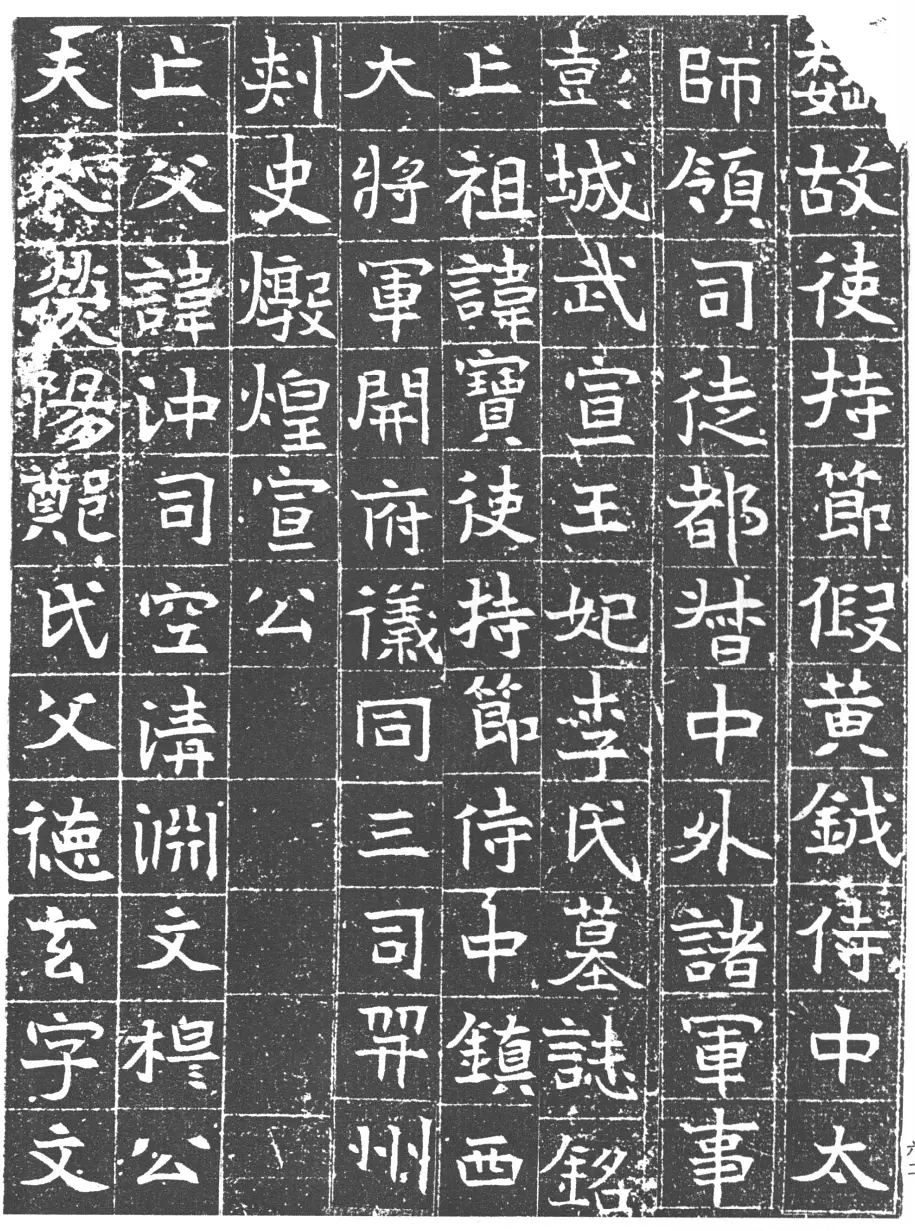 魏故使持節假黃鉞侍中太
師領司徒都督中外諸軍事
彭城武宣王妃李氏墓誌銘
亡祖諱寶使持節侍中鎮西
大將軍開府儀同三司并州
刾史燉煌宣公
亡父諱沖司空清淵文穆公
夫人滎陽鄭氏父德玄字文